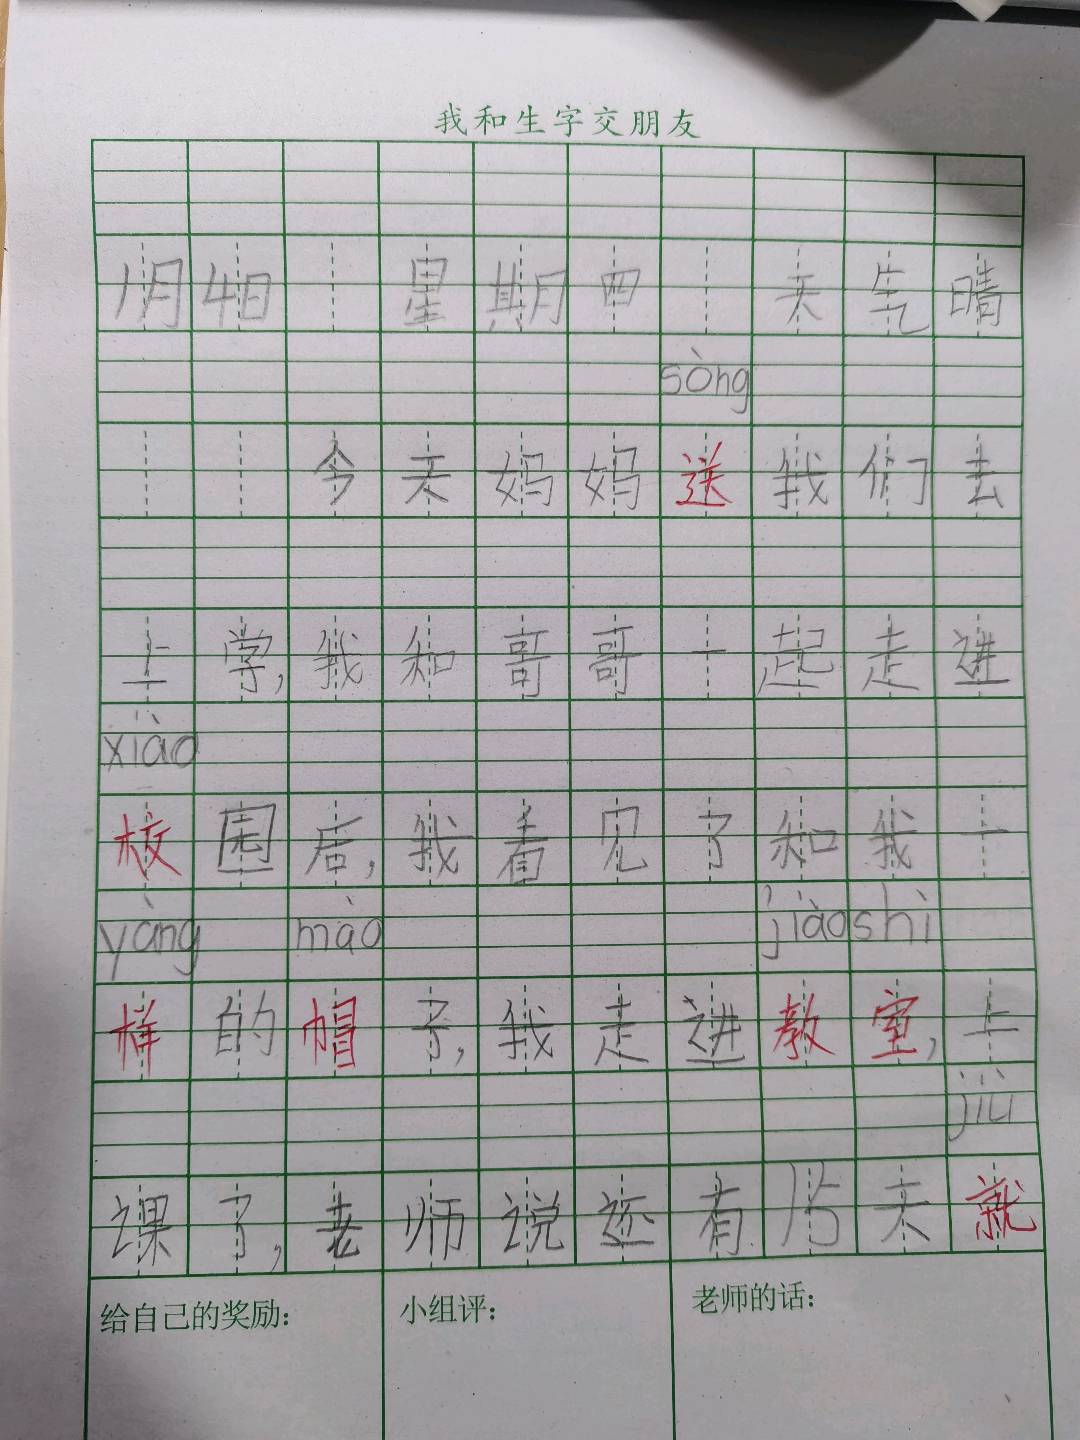 我和生字交朋友
1月4日 星期四 天气晴
sòng
今天妈妈送我们去
上学,我和哥哥一起走进
xiào
校园后,我看见了和我一
yàng mào jiàoshì
样的帽子,我走进教室,上
jiù
课了,老师说还有15天就
给自己的奖励: 小组评: 老师的话: